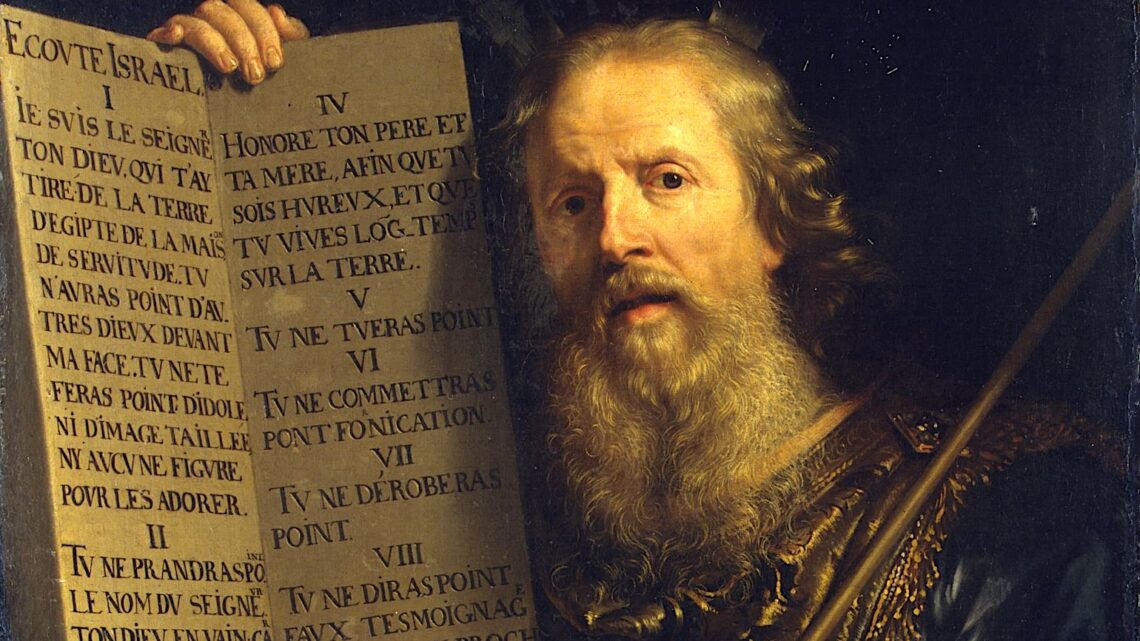 ECOVTE ISRAEL.
I
IE SVIS LE SEIGNR
TON DIEV, QVI T'AY
TIRE DE LA TERRE
D'EGIPTE DE LA MAISON
DE SERVITVDE. TV
N'AVRAS POINT D'AV.
TRES DIEVX DEVANT
MA FACE. TV NE TE
FERAS POINT D'IDOLE,
NI D'IMAGE TAILLEE
NY AVCVNE FIGVRE
POVR LES ADORER.
II
TV NE PRANDRAS POINT
LE NOM DV SEIGNEVR
TON DIEV EN VAIN. CAR
IV
HONORE TON PERE ET
TA MERE, AFIN QVE TV
SOIS HVREVX, ET QVE
TV VIVES LŌG. TEMP
SVR LA TERRE.
V
TV NE TVERAS POINT
VI
TV NE COMMETTRAS
PONT FORNICATION.
VII
TV NE DÉROBERAS
POINT.
VIII
TV NE DIRAS POINT
FAVX TESMOIGNAGE
PROCH